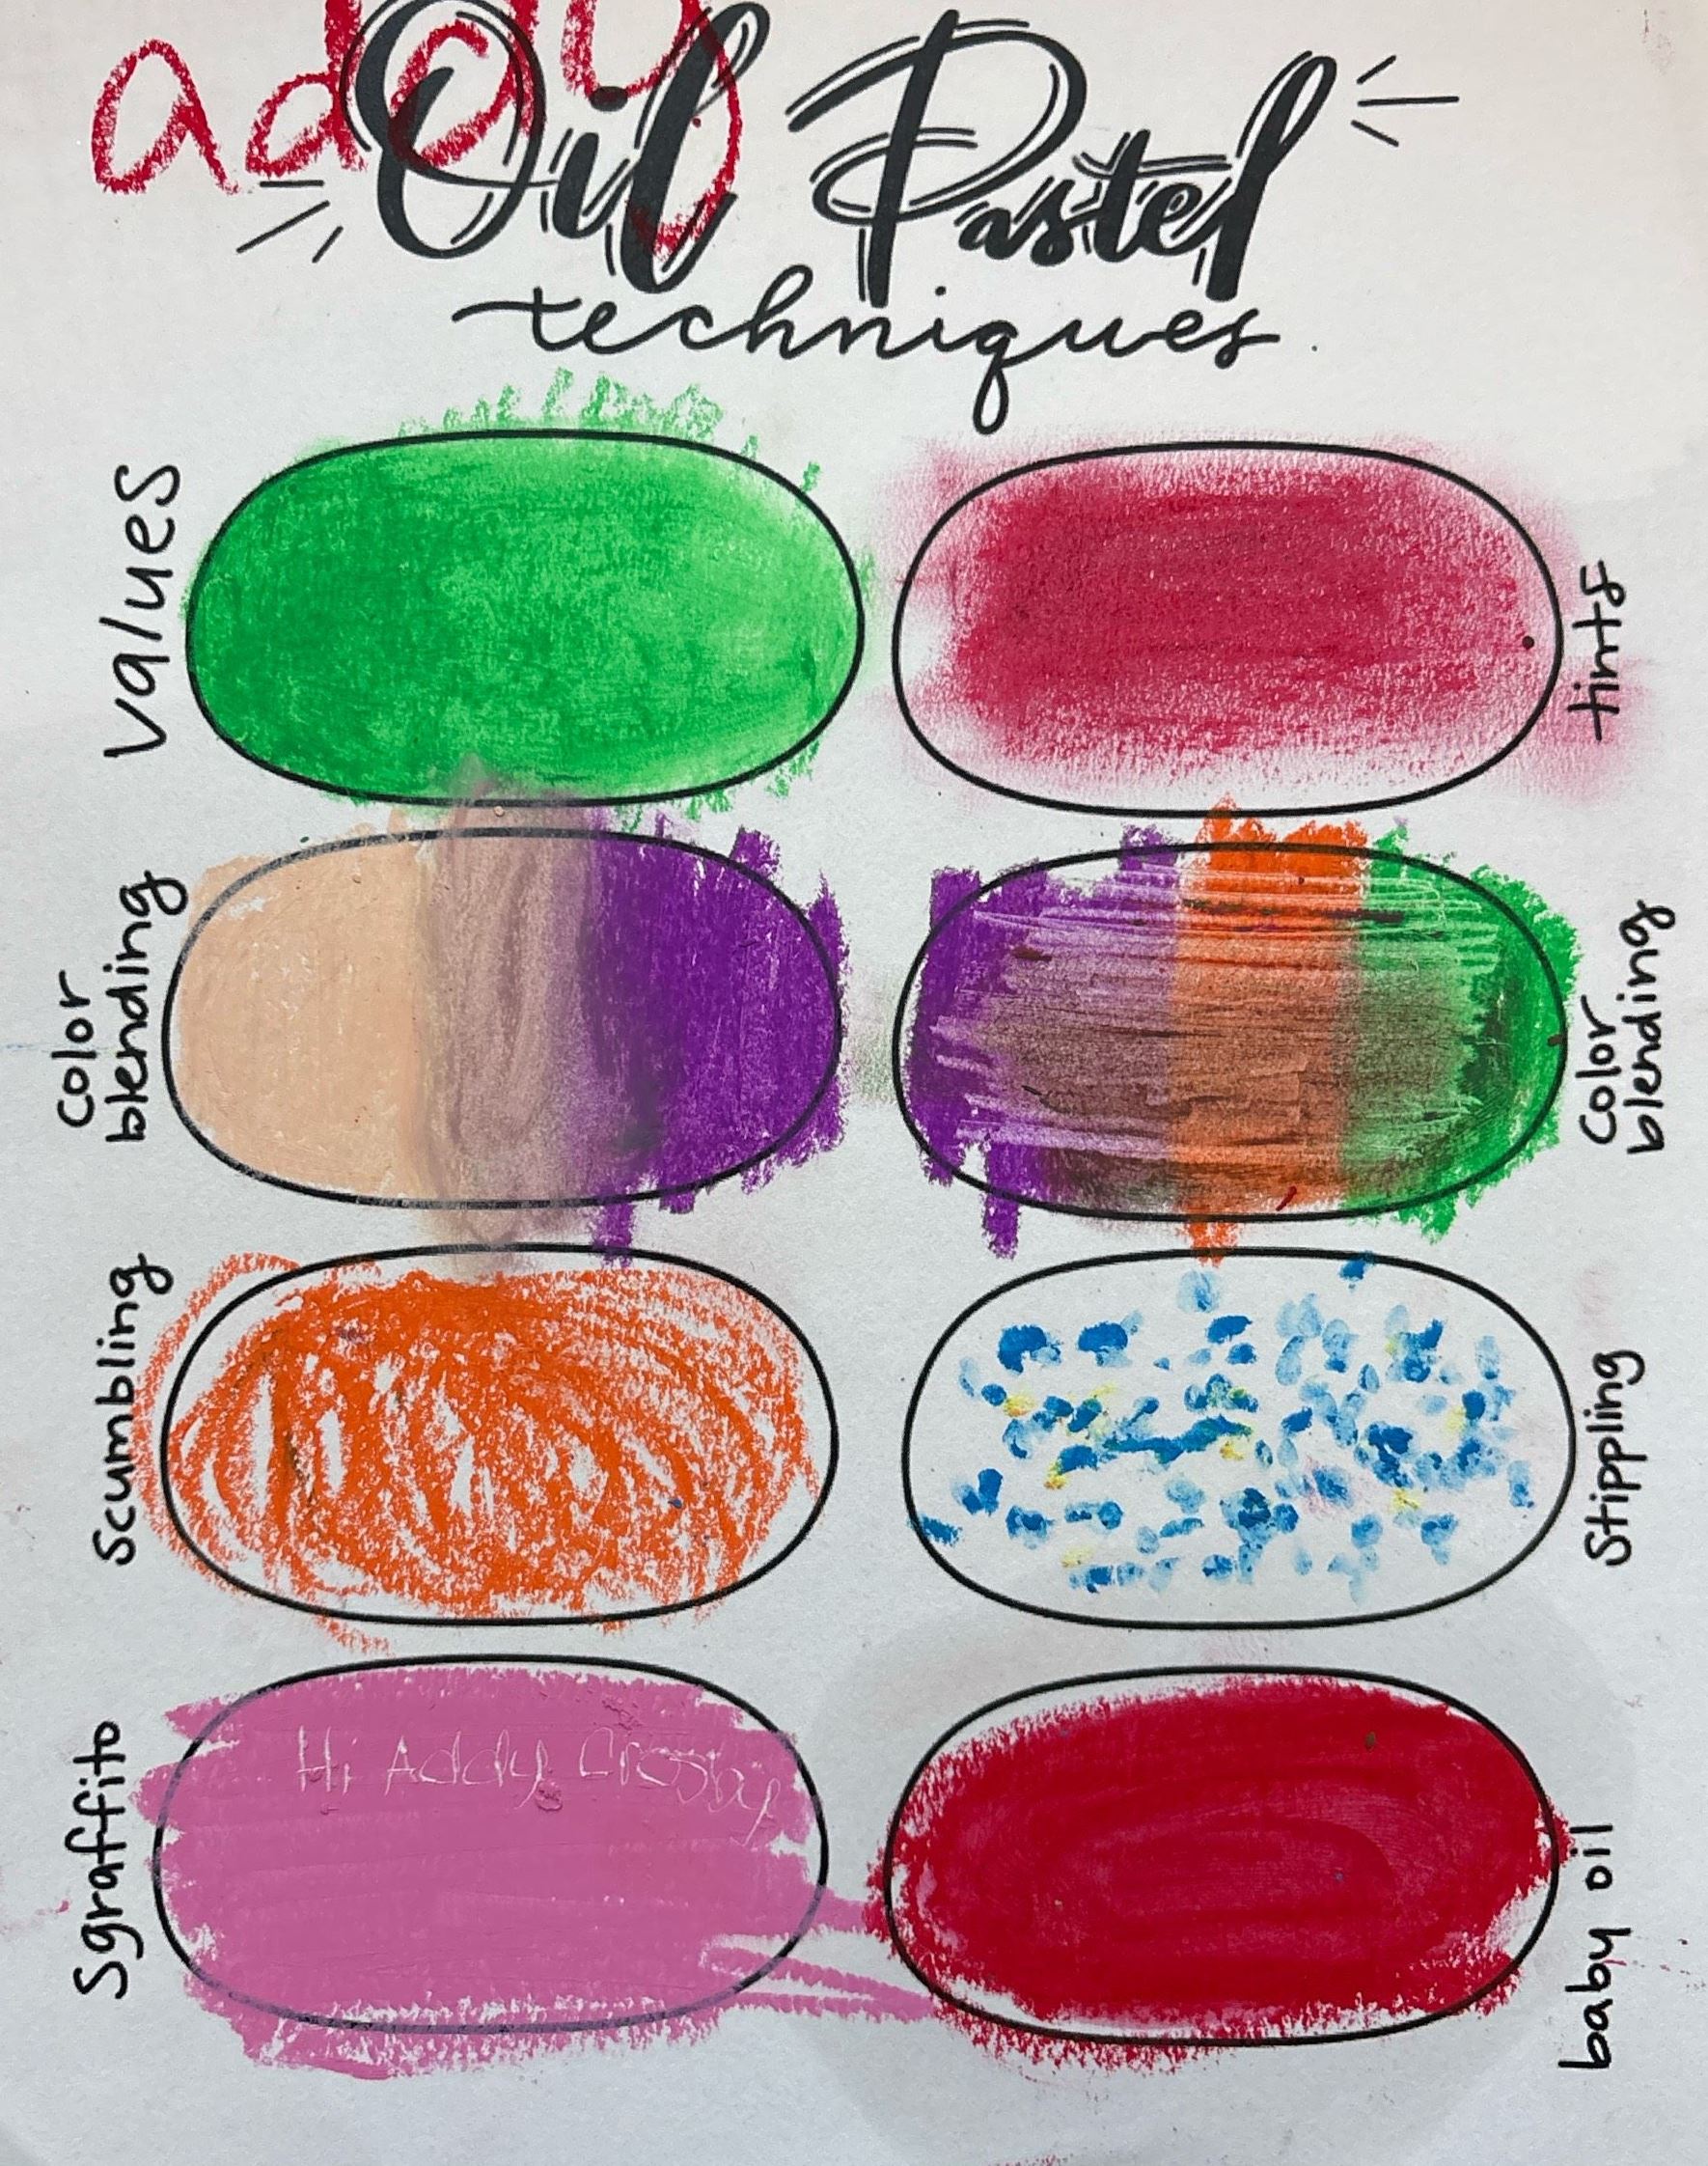 addy
Oil Pastel
techniques
values
tints
Color
blending
Color
blending
Scumbling
Stippling
Sgraffito
Hi Addy Crosby
baby oil